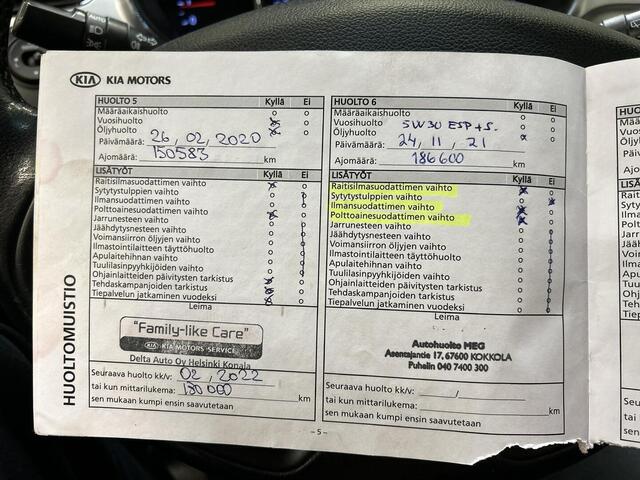 KIA KIA MOTORS
HUOLTO 5 Kyllä Ei
Määräaikaishuolto
Vuosihuolto
Öljyhuolto
Päivämäärä: 26, 02, 2020
Ajomäärä: 150583 km
LISÄTYÖT Kyllä Ei
Raitisilmasuodattimen vaihto
Sytytystulppien vaihto
Ilmansuodattimen vaihto
Polttoainesuodattimen vaihto
Jarrunesteen vaihto
Jäähdytysnesteen vaihto
Voimansiirron öljyjen vaihto
Ilmastointilaitteen täyttöhuolto
Apulaitehihnan vaihto
Tuulilasinpyyhkijöiden vaihto
Ohjainlaitteiden päivitysten tarkistus
Tehdaskampanjoiden tarkistus
Tiepalvelun jatkaminen vuodeksi
Leima
"Family-like Care"
KIA MOTORS SERVICE
Delta Auto Oy Helsinki Konala
Seuraava huolto kk/v: 02, 2022
tai kun mittarilukema: 180000 km
sen mukaan kumpi ensin saavutetaan
HUOLTOMUISTIO
HUOLTO 6 Kyllä Ei
Määräaikaishuolto
Vuosihuolto 5W30 ESP +S.
Öljyhuolto
Päivämäärä: 24, 11, 21
Ajomäärä: 186600 km
LISÄTYÖT Kyllä Ei
Raitisilmasuodattimen vaihto
Sytytystulppien vaihto
Ilmansuodattimen vaihto
Polttoainesuodattimen vaihto
Jarrunesteen vaihto
Jäähdytysnesteen vaihto
Voimansiirron öljyjen vaihto
Ilmastointilaitteen täyttöhuolto
Apulaitehihnan vaihto
Tuulilasinpyyhkijöiden vaihto
Ohjainlaitteiden päivitysten tarkistus
Tehdaskampanjoiden tarkistus
Tiepalvelun jatkaminen vuodeksi
Leima
Autohuolto MEG
Asentajantie 17, 67600 KOKKOLA
Puhelin 040 7400 300
Seuraava huolto kk/v: /
tai kun mittarilukema: km
sen mukaan kumpi ensin saavutetaan
- 5 -
HUOL
Määrä
Vuosi
Öljyh
Päivä
Ajom
LISÄ
Raiti
Sytyt
Ilma
Poltt
Jarru
Jääh
Voim
Ilma
Apu
Tuul
Ohja
Teho
Tiep
Seu
tai k
sen